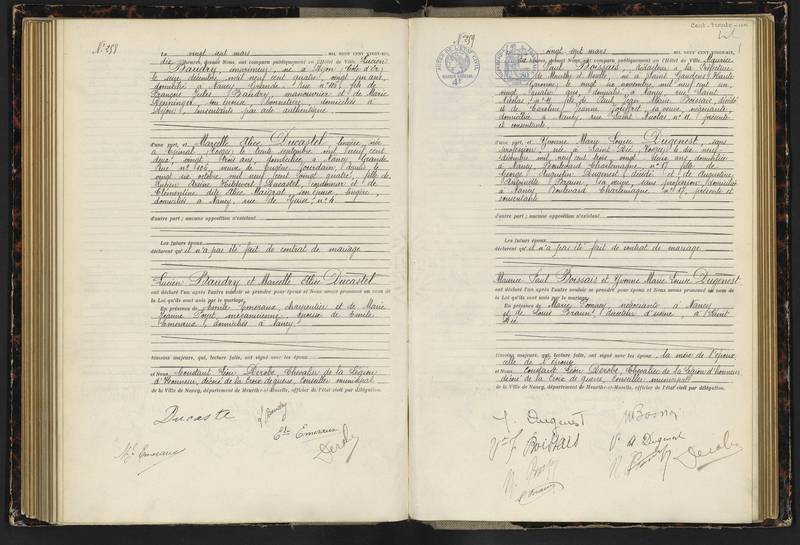 N° 358
Le vingt sept mars MIL NEUF CENT VINGT-SIX,
dix heures, devant Nous, ont comparu publiquement en l'Hôtel de Ville Lucien
Baudry, né à Dijon (Côte d'Or)
le seize décembre mil neuf cent quatre, vingt un ans,
domicilié à Nancy, Grande Rue n° 106, fils de
François Jules Baudry, manouvrier et de Marie
son épouse, domiciliés à
Dijon, consentants par acte authentique
d'une part, et Marcelle Alice Ducastel, lingère, née
à Épinal (Vosges) le trente septembre mil neuf cent
deux, vingt trois ans, domiciliée à Nancy Grande
Rue n° 106, veuve de Jourdain, depuis le
vingt six octobre mil neuf cent vingt quatre, fille de
Ducastel, et de
Clémentine son épouse, lingère,
domiciliés à Nancy, rue de Guise, n° 4
d'autre part ; aucune opposition n'existant
Les futurs époux
déclarent qu'il n'a pas été fait de contrat de mariage
Lucien Baudry et Marcelle Alice Ducastel
ont déclaré l'un après l'autre vouloir se prendre pour époux et Nous avons prononcé au nom de
la Loi qu'ils sont unis par le mariage.
En présence de Emile charpentier et de Marie
Jeanne mécanicienne, épouse de Emile
domiciliés à Nancy
témoins majeurs, qui, lecture faite, ont signé avec les époux
et Nous, Constant Léon Derobe, Chevalier de la Légion
d'Honneur, décoré de la Croix de guerre, conseiller municipal
de la Ville de Nancy, département de Meurthe-et-Moselle, officier de l'état civil par délégation.
Ducaste
Baudry
Derobe
N° 359
Cent-trente-un
Le vingt sept mars MIL NEUF CENT VINGT-SIX,
dix heures, devant Nous, ont comparu publiquement en l'Hôtel de Ville Maurice
Paul Boissais, rédacteur à la Préfecture
de Meurthe et Moselle, né à Saint Gaudens (Haute
Garonne) le vingt six novembre mil neuf cent un,
vingt quatre ans, domicilié à Nancy, rue Saint
Nicolas n° 11, fils de Paul Jean Marie Boissais, décédé
et de Caroline Jeanne sa veuve, négociante,
domiciliée à Nancy, rue Saint Nicolas n° 11, présente
et consentante,
d'une part, et Yvonne Marie Louise Dugenest, sans
profession, née à Saint Dié (Vosges) le dix neuf
décembre mil neuf cent trois, vingt deux ans, domiciliée
à Nancy Boulevard Charlemagne n° 17, fille de
George Augustin Dugenest, décédé et de Augustine
Braun, sa veuve, sans profession, domiciliée
à Nancy Boulevard Charlemagne n° 17, présente et
consentante
d'autre part ; aucune opposition n'existant
Les futurs époux
déclarent qu'il n'a pas été fait de contrat de mariage
Maurice Paul Boissais et Yvonne Marie Louise Dugenest
ont déclaré l'un après l'autre vouloir se prendre pour époux et Nous avons prononcé au nom de
la Loi qu'ils sont unis par le mariage.
En présence de Marie négociante à Nancy
et de Louis Braun, directeur d'usine, à Saint
Dié
témoins majeurs, qui, lecture faite, ont signé avec les époux, la mère de l'époux,
celle de l'épouse
et Nous, Constant Léon Derobe, Chevalier de la Légion d'Honneur
décoré de la Croix de guerre, conseiller municipal
de la Ville de Nancy, département de Meurthe-et-Moselle, officier de l'état civil par délégation.
Y. Dugenest
Boissais
Derobe